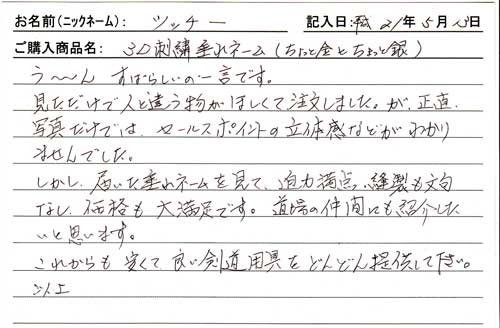 お名前(ニックネーム): ツッチー 記入日:平成21年5月13日
ご購入商品名: 3D刺繍垂れネーム(ちょっと金とちょっと銀)
う〜〜ん すばらしいの一言です。
見ただけで人と違う物がほしくて注文しました。が、正直、
写真だけでは、セールスポイントの立体感などがわかり
ませんでした。
しかし、届いた垂れネームを見て、迫力満点、縫製も文句
なし、価格も大満足です。道場の仲間にも紹介した
いと思います。
これからも安くて良い剣道用具をどんどん提供して下さい。
以上